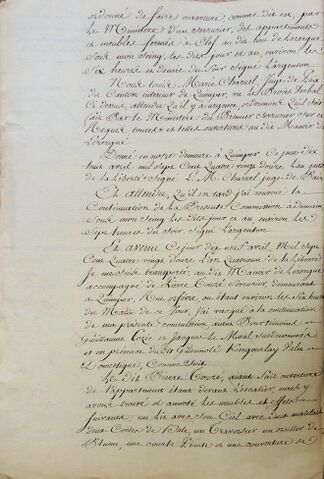 ordonné de faire ouverture, comme dit est, par
le Ministere d'un Serrurier, des appartements
et meubles fermés à Clef au dit lieu de Lezergué
sous mon Seing, les dits jour et an, environ les
Six heures et demie du Soir Signé Largenton
Nous Louis Marie Charuel, juge de Paix
du Canton intérieur de Quimper, vu le Procès verbal
Ci dessus, attendu qu'il y a urgence, ordonnons qu'il soit
fait Par le Ministere du Premier Serrurier sur ce
Requis, toutes et telles ouvertures au dit Manoir de
Lezergué
Donné en notre demeure à Quimper ce jour dix
huit avril mil Sept Cent quatre vingt douze, l'an quatre
de la Liberté, Signé L. M. Charuel juge de Paix
Et attendu qu'il est tard j'ai renvoié la
Continuation de la Presente Commission à demain
Sous mon Seing les dits jour et an environ les
Sept heures du soir Signé Largenton
Et avenu ce jour dix neuf avril, Mil Sept
Cent Quatre vingt douze L'an Quatrieme de la Liberté
je me suis transporté, au dit Manoir de Lezergué
accompagné de Pierre Serrurier, demeurant
à Quimper, Rue obscure, ou étant environ les dix heures
du Matin de ce jour, j'ai vacqué à la continuation
de ma presente commission,
Guillaume et Jacques le Moal susdénommés
et en présence du dit Guénolé Kergourlay Valet
Domestique, Comme Suit
Le dit Pierre ayant fait ouverture
de l'appartement étant derriere l'escalier, nous y
avons trouvé et annoté les meubles et effets
Suivants, un lit avec Son Ciel avec deux matelats
deux Coëtes de Bale, un Traversier un oreiller de
Plume, une courte Pointe et une couverture de